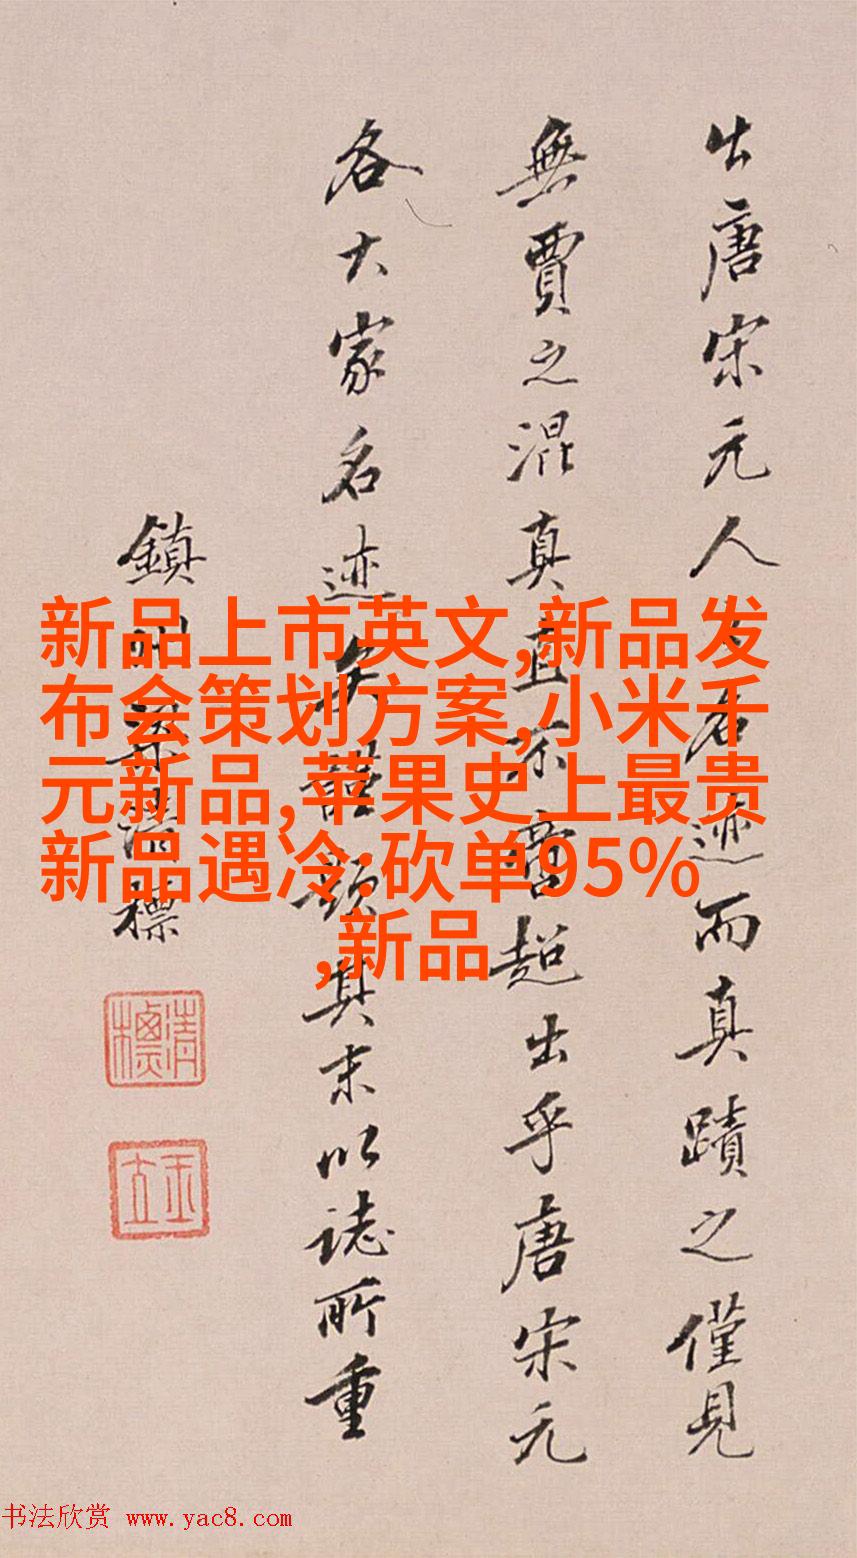 出唐宋元人名迹而真蹟之僅見
無賈之混真直不啻超出乎唐宋元
各大家名迹矣謹題其末以誌所重
鎮州梁清標
清標
玉立
新品上市英文,新品发
布会策划方案,小米千
元新品,苹果史上最贵
新品遇冷:砍单95%
,新品
书法欣赏 www.yac8.com